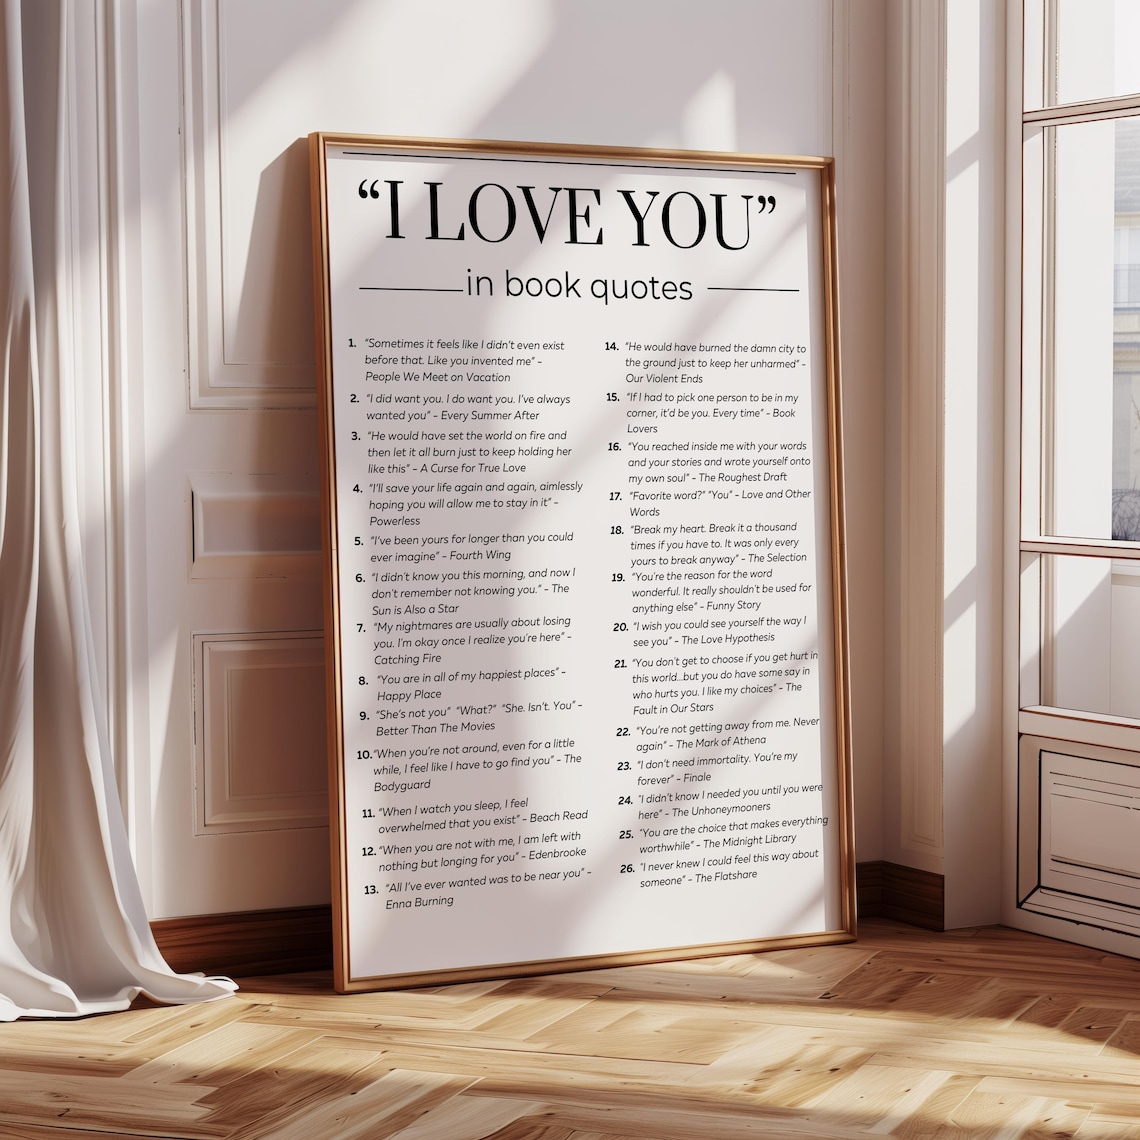 “I LOVE YOU”
in book quotes
1. “Sometimes it feels like I didn’t even exist
before that. Like you invented me” -
People We Meet on Vacation
2. “I did want you. I do want you. I’ve always
wanted you” - Every Summer After
3. “He would have set the world on fire and
then let it all burn just to keep holding her
like this” - A Curse for True Love
4. “I’ll save your life again and again, aimlessly
hoping you will allow me to stay in it” -
Powerless
5. “I’ve been yours for longer than you could
ever imagine” - Fourth Wing
6. “I didn’t know you this morning, and now I
don’t remember not knowing you.” - The
Sun is Also a Star
7. “My nightmares are usually about losing
you. I’m okay once I realize you’re here” -
Catching Fire
8. “You are in all of my happiest places” -
Happy Place
9. “She’s not you” “What?” “She. Isn’t. You” -
Better Than The Movies
10. “When you’re not around, even for a little
while, I feel like I have to go find you” - The
Bodyguard
11. “When I watch you sleep, I feel
overwhelmed that you exist” - Beach Read
12. “When you are not with me, I am left with
nothing but longing for you” - Edenbrooke
13. “All I’ve ever wanted was to be near you” -
Enna Burning
14. “He would have burned the damn city to
the ground just to keep her unharmed” -
Our Violent Ends
15. “If I had to pick one person to be in my
corner, it’d be you. Every time” - Book
Lovers
16. “You reached inside me with your words
and your stories and wrote yourself onto
my own soul” - The Roughest Draft
17. “Favorite word?” “You” - Love and Other
Words
18. “Break my heart. Break it a thousand
times if you have to. It was only every
yours to break anyway” - The Selection
19. “You’re the reason for the word
wonderful. It really shouldn’t be used for
anything else” - Funny Story
20. “I wish you could see yourself the way I
see you” - The Love Hypothesis
21. “You don’t get to choose if you get hurt in
this world...but you do have some say in
who hurts you. I like my choices” - The
Fault in Our Stars
22. “You’re not getting away from me. Never
again” - The Mark of Athena
23. “I don’t need immortality. You’re my
forever” - Finale
24. “I didn’t know I needed you until you were
here” - The Unhoneymooners
25. “You are the choice that makes everything
worthwhile” - The Midnight Library
26. “I never knew I could feel this way about
someone” - The Flatshare